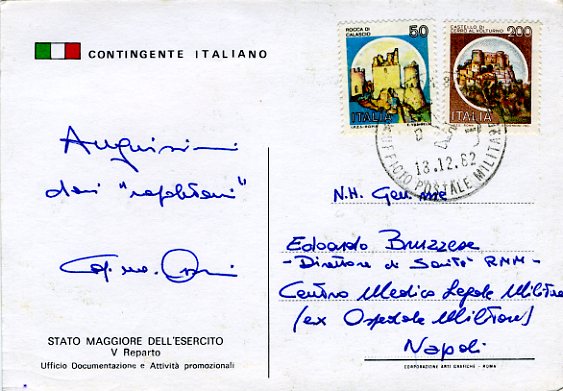 CONTINGENTE ITALIANO
ROCCA DI CALASCIO
50
ITALIA
CASTELLO DI CERRO AL VOLTURNO
200
ITALIA
UFFICIO POSTALE MILITARE
13.12.82
Augurissimi
dai "napoletani"
N.H. Gen. me
Edoardo Bruzzese
- Direttore di Sanità RMM -
Centro Medico Legale Militare
(ex Ospedale Militare)
Napoli
STATO MAGGIORE DELL'ESERCITO
V Reparto
Ufficio Documentazione e Attività promozionali
CORPORAZIONE ARTI GRAFICHE - ROMA